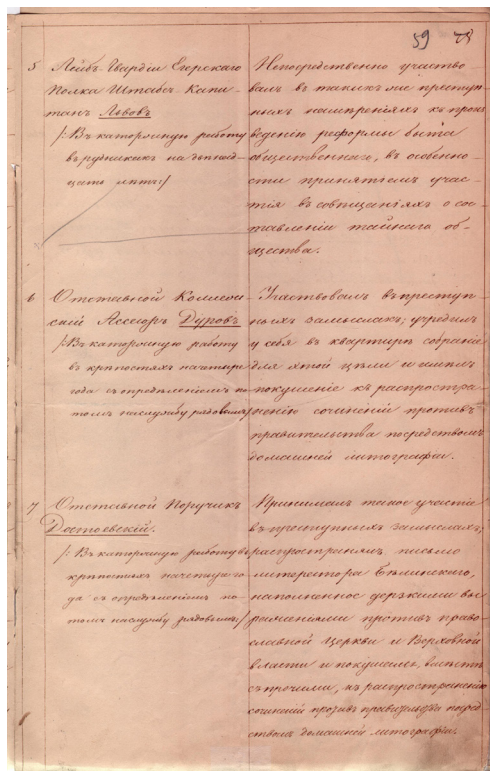 59
5 Лейбъ-Гвардіи Егерскаго
Полка Штабсъ-Капи-
танъ Львовъ
/:Въ каторжную работу
въ рудникахъ на двѣнад-
цать лѣтъ:/
Непосредственно участво-
валъ въ такихъ же преступ-
ныхъ намѣреніяхъ къ произ-
веденію реформы быта
общественнаго, въ особенно-
сти принятіемъ учас-
тія въ совѣщаніяхъ о сос-
тавленіи тайнаго об-
щества.
6 Отставной Коллеж-
скій Ассесоръ Дуровъ
/:Въ каторжную работу
въ крѣпостяхъ на четыре
года съ опредѣленіемъ по-
томъ на службу рядовымъ/
Участвовалъ въ преступ-
ныхъ замыслахъ; учредилъ
у себя въ квартирѣ собранія
для этой цѣли и имѣлъ
покушеніе къ распростра-
ненію сочиненій противъ
правительства посредствомъ
домашней литографіи.
7 Отставной Поручикъ
Достоевскій.
/:Въ каторжную работу въ
крѣпостяхъ на четыре го-
да съ опредѣленіемъ по-
томъ на службу рядовымъ:/
Принималъ такое участіе
въ преступныхъ замыслахъ;
распространялъ письмо
литератора Бѣлинскаго,
наполненное дерзкими вы-
раженіями противъ право-
славной Церкви и Верховной
власти и покушался, вмѣстѣ
съ прочими, къ распространенію
сочиненій противъ правительства посред-
ствомъ домашней литографіи.